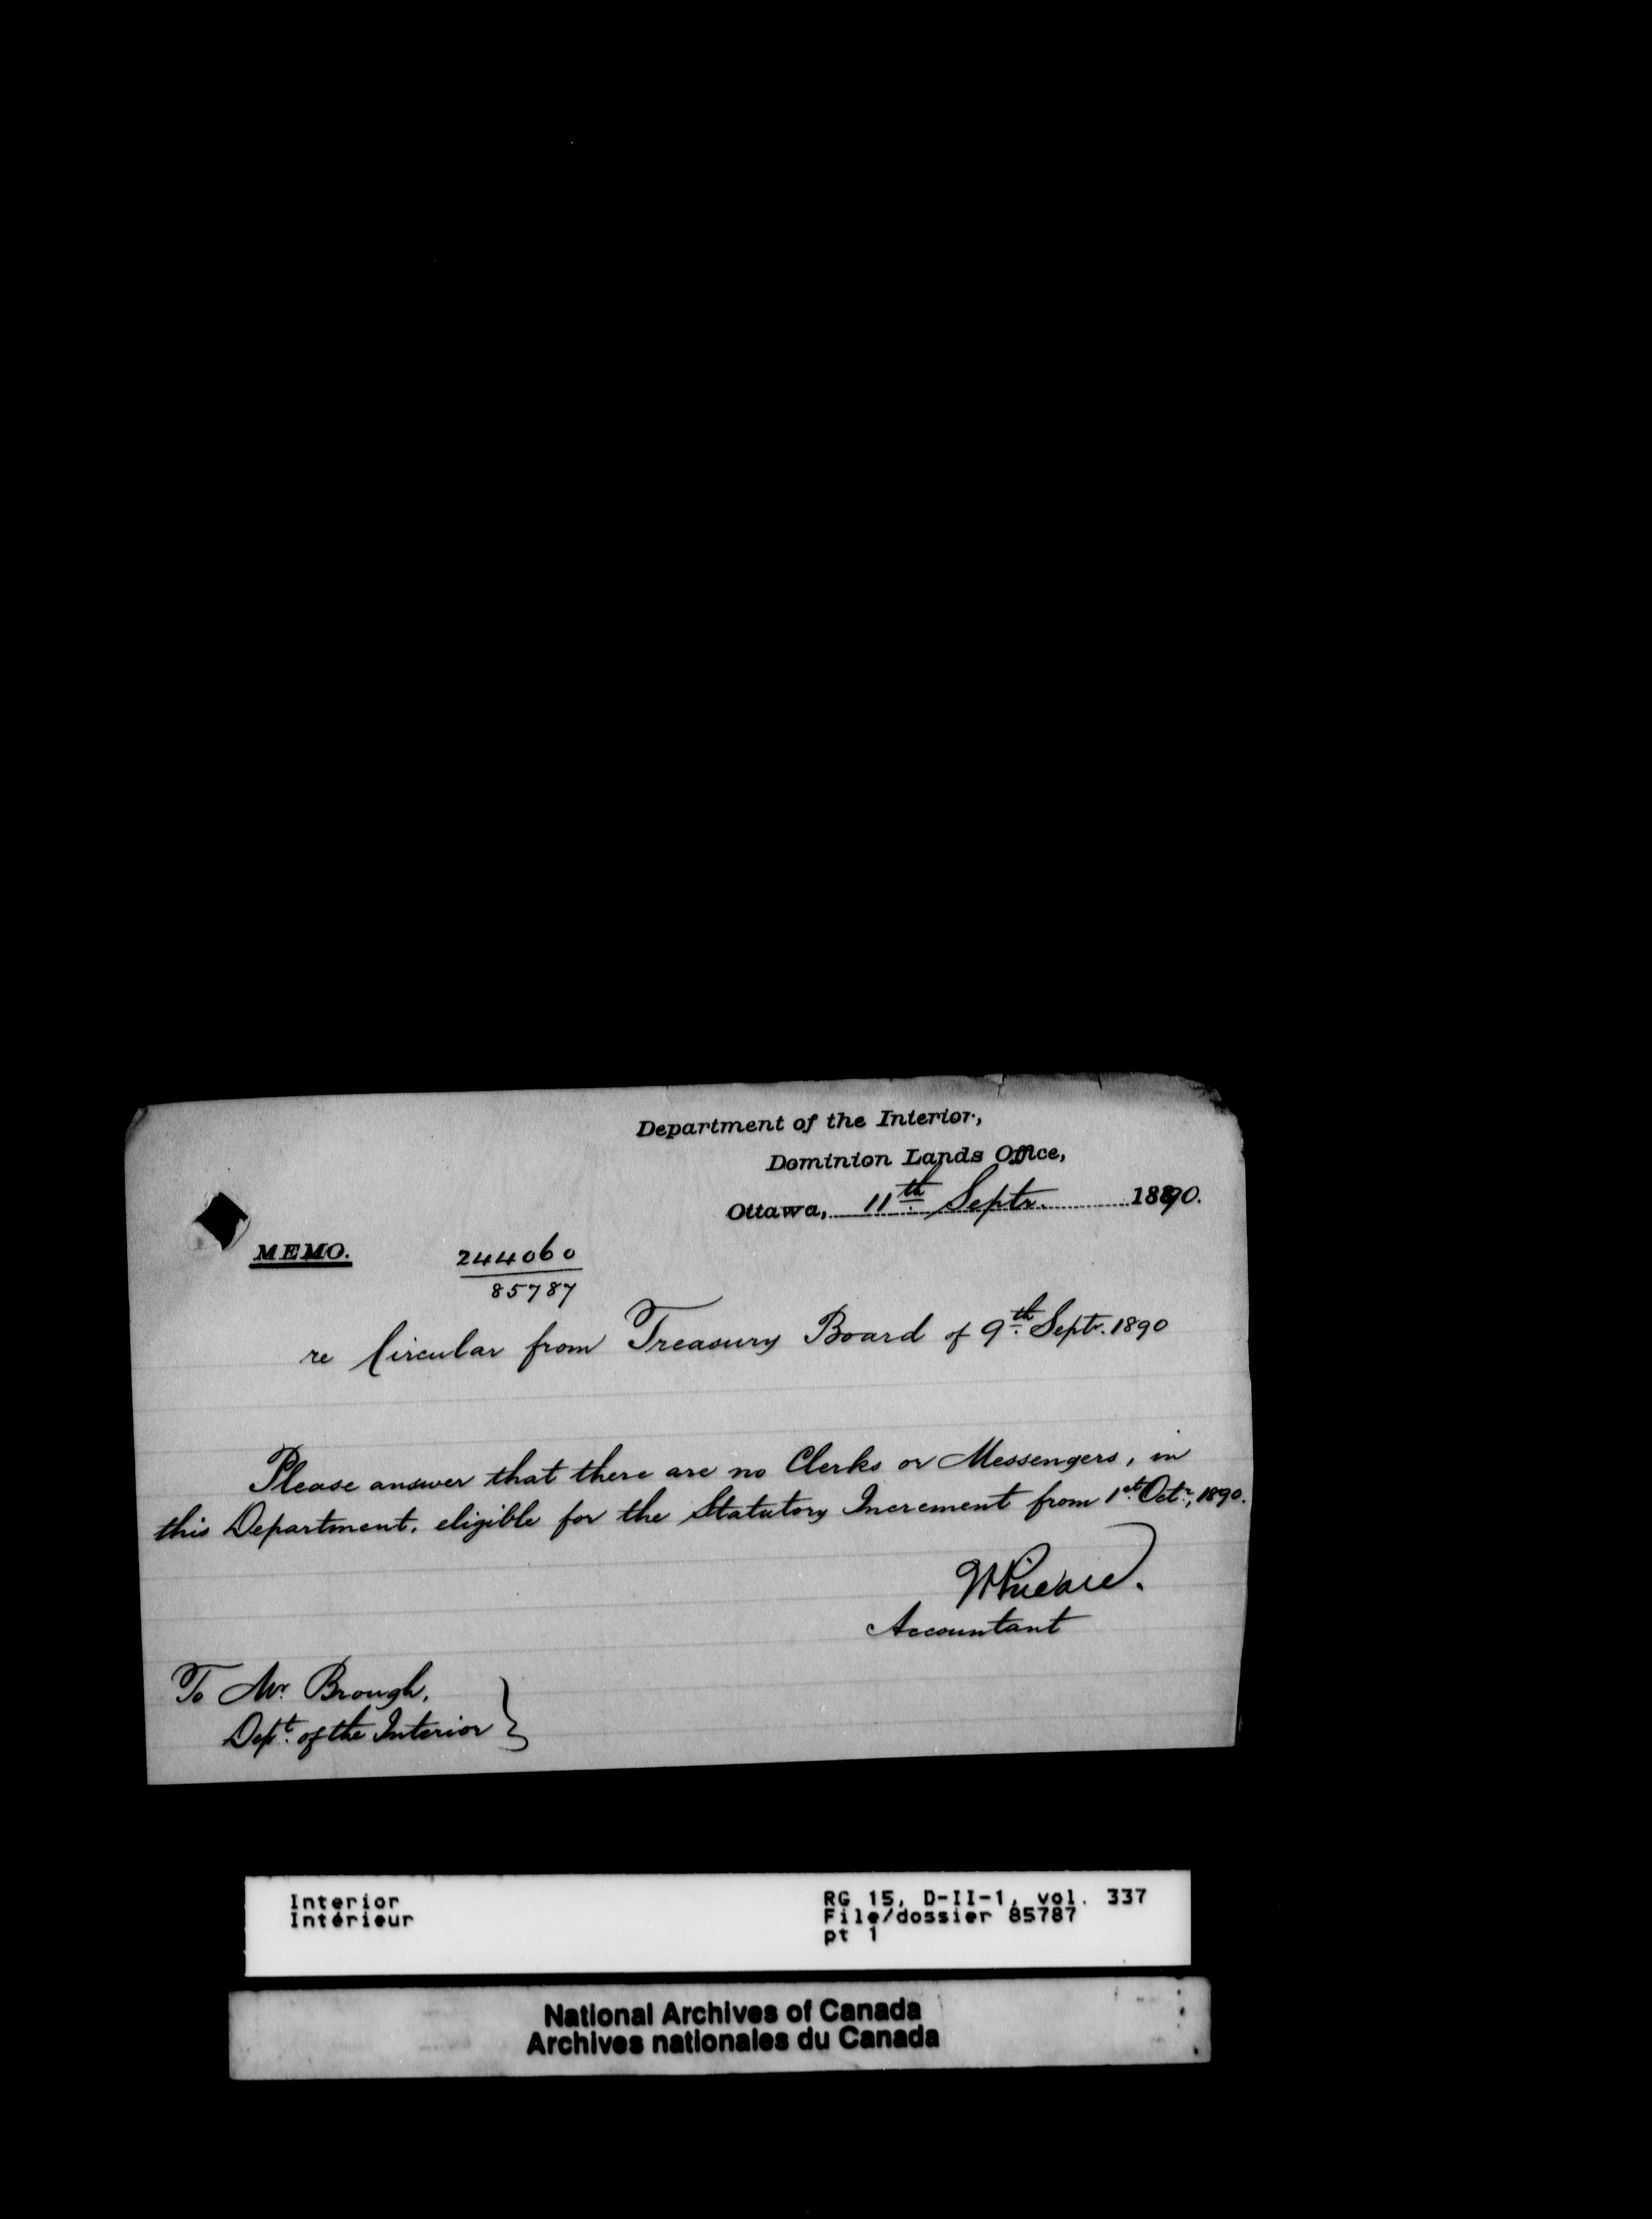 Department of the Interior,
Dominion Lands Office,
Ottawa, 11th Septr. 1890.
MEMO.
244060
85787
re Circular from Treasury Board of 9th Septr. 1890
Please answer that there are no Clerks or Messengers, in
this Department, eligible for the Statutory Increment from 1st Octr, 1890.
Accountant
To Mr. Brough,
Dept. of the Interior
Interior
Intérieur
RG 15, D-II-1, vol. 337
File/dossier 85787
pt 1
National Archives of Canada
Archives nationales du Canada